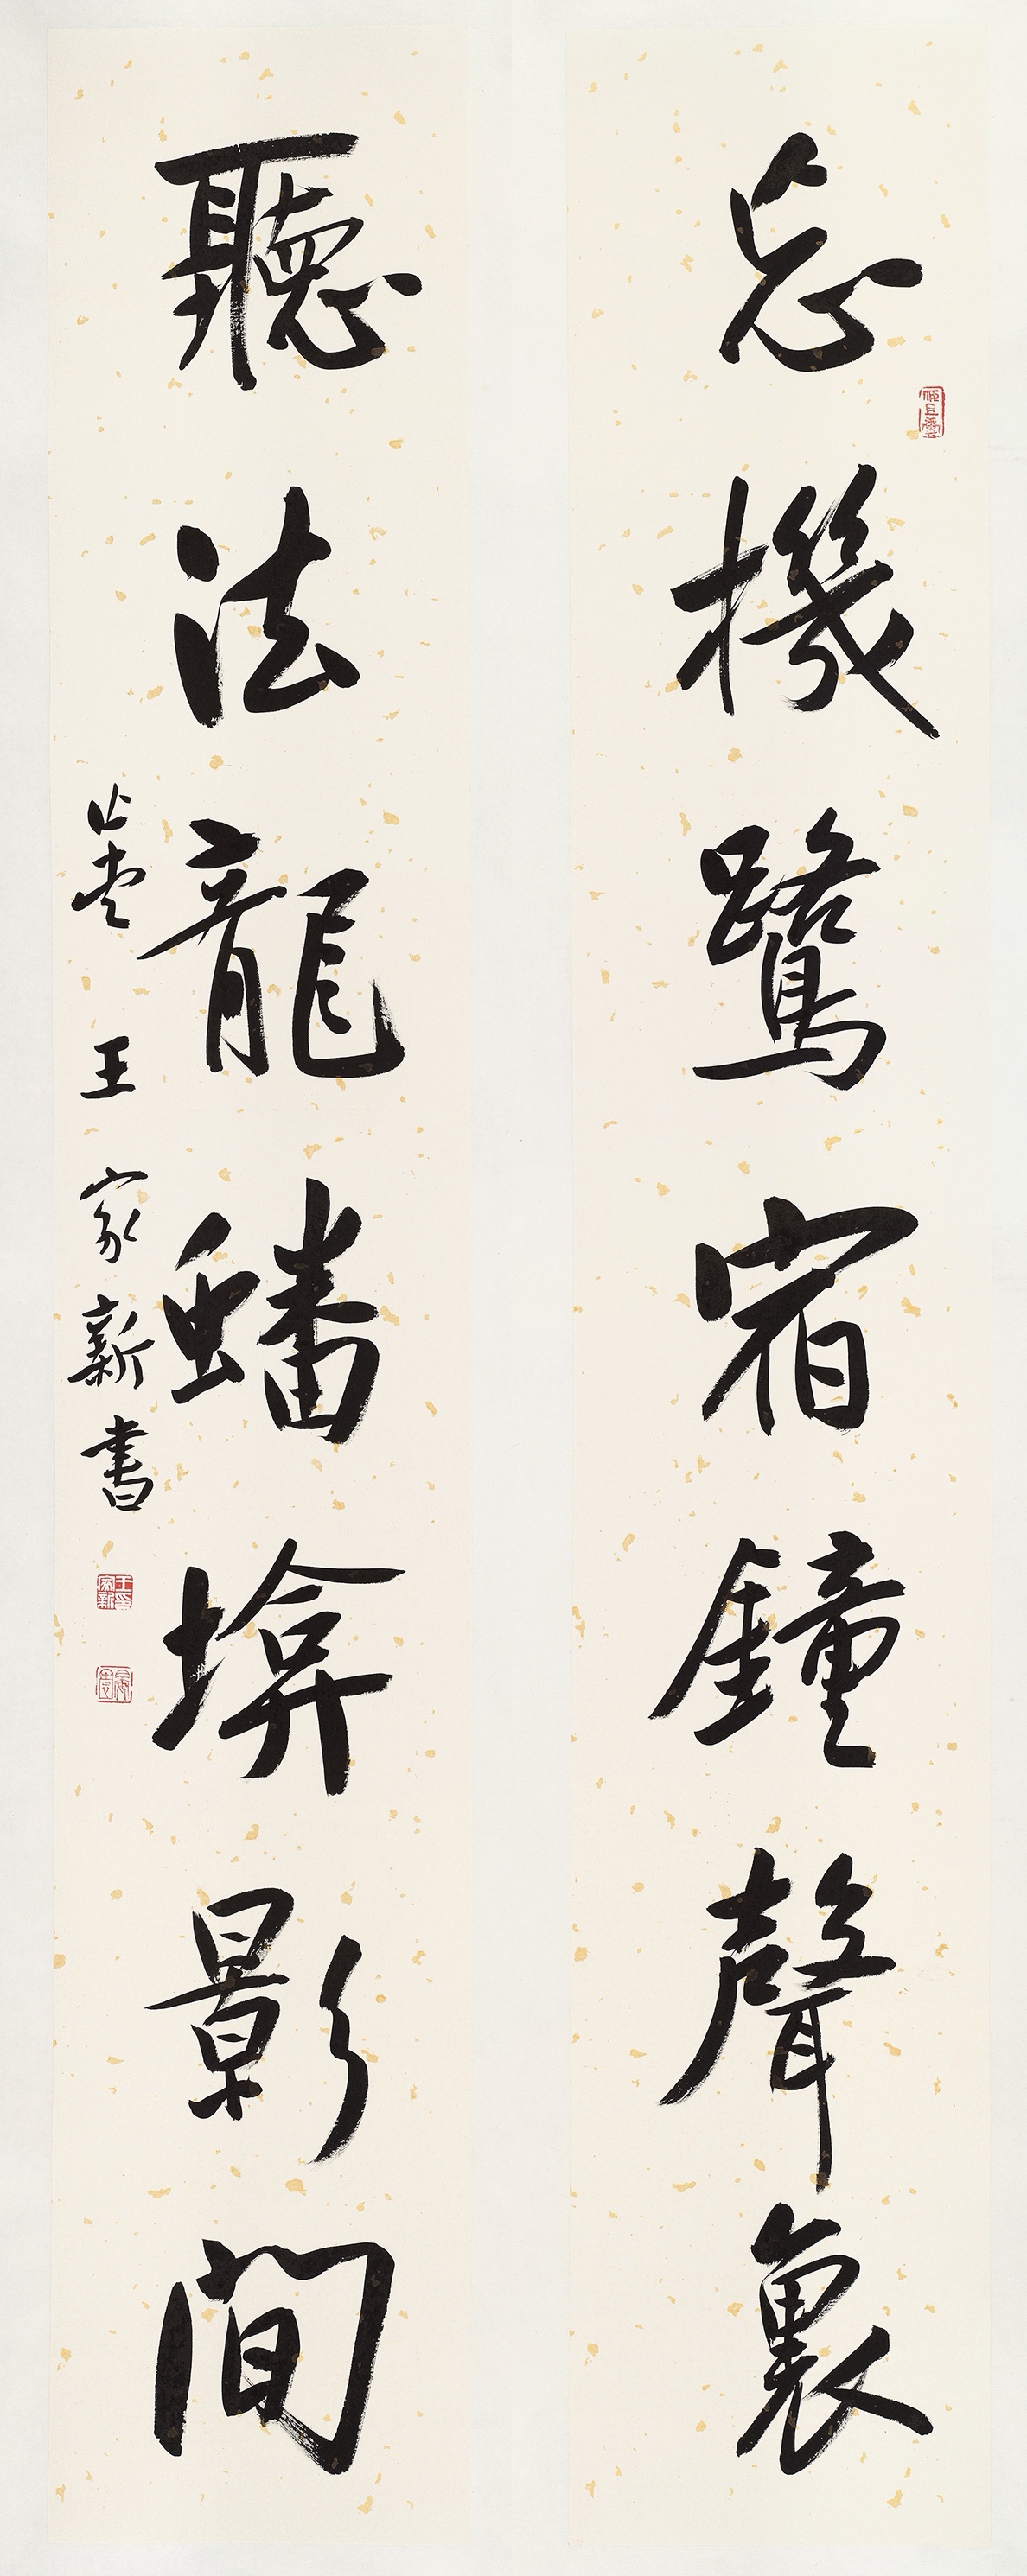 忘機鷺宿鐘聲裏
聽法龍蟠塔影間
王家新書